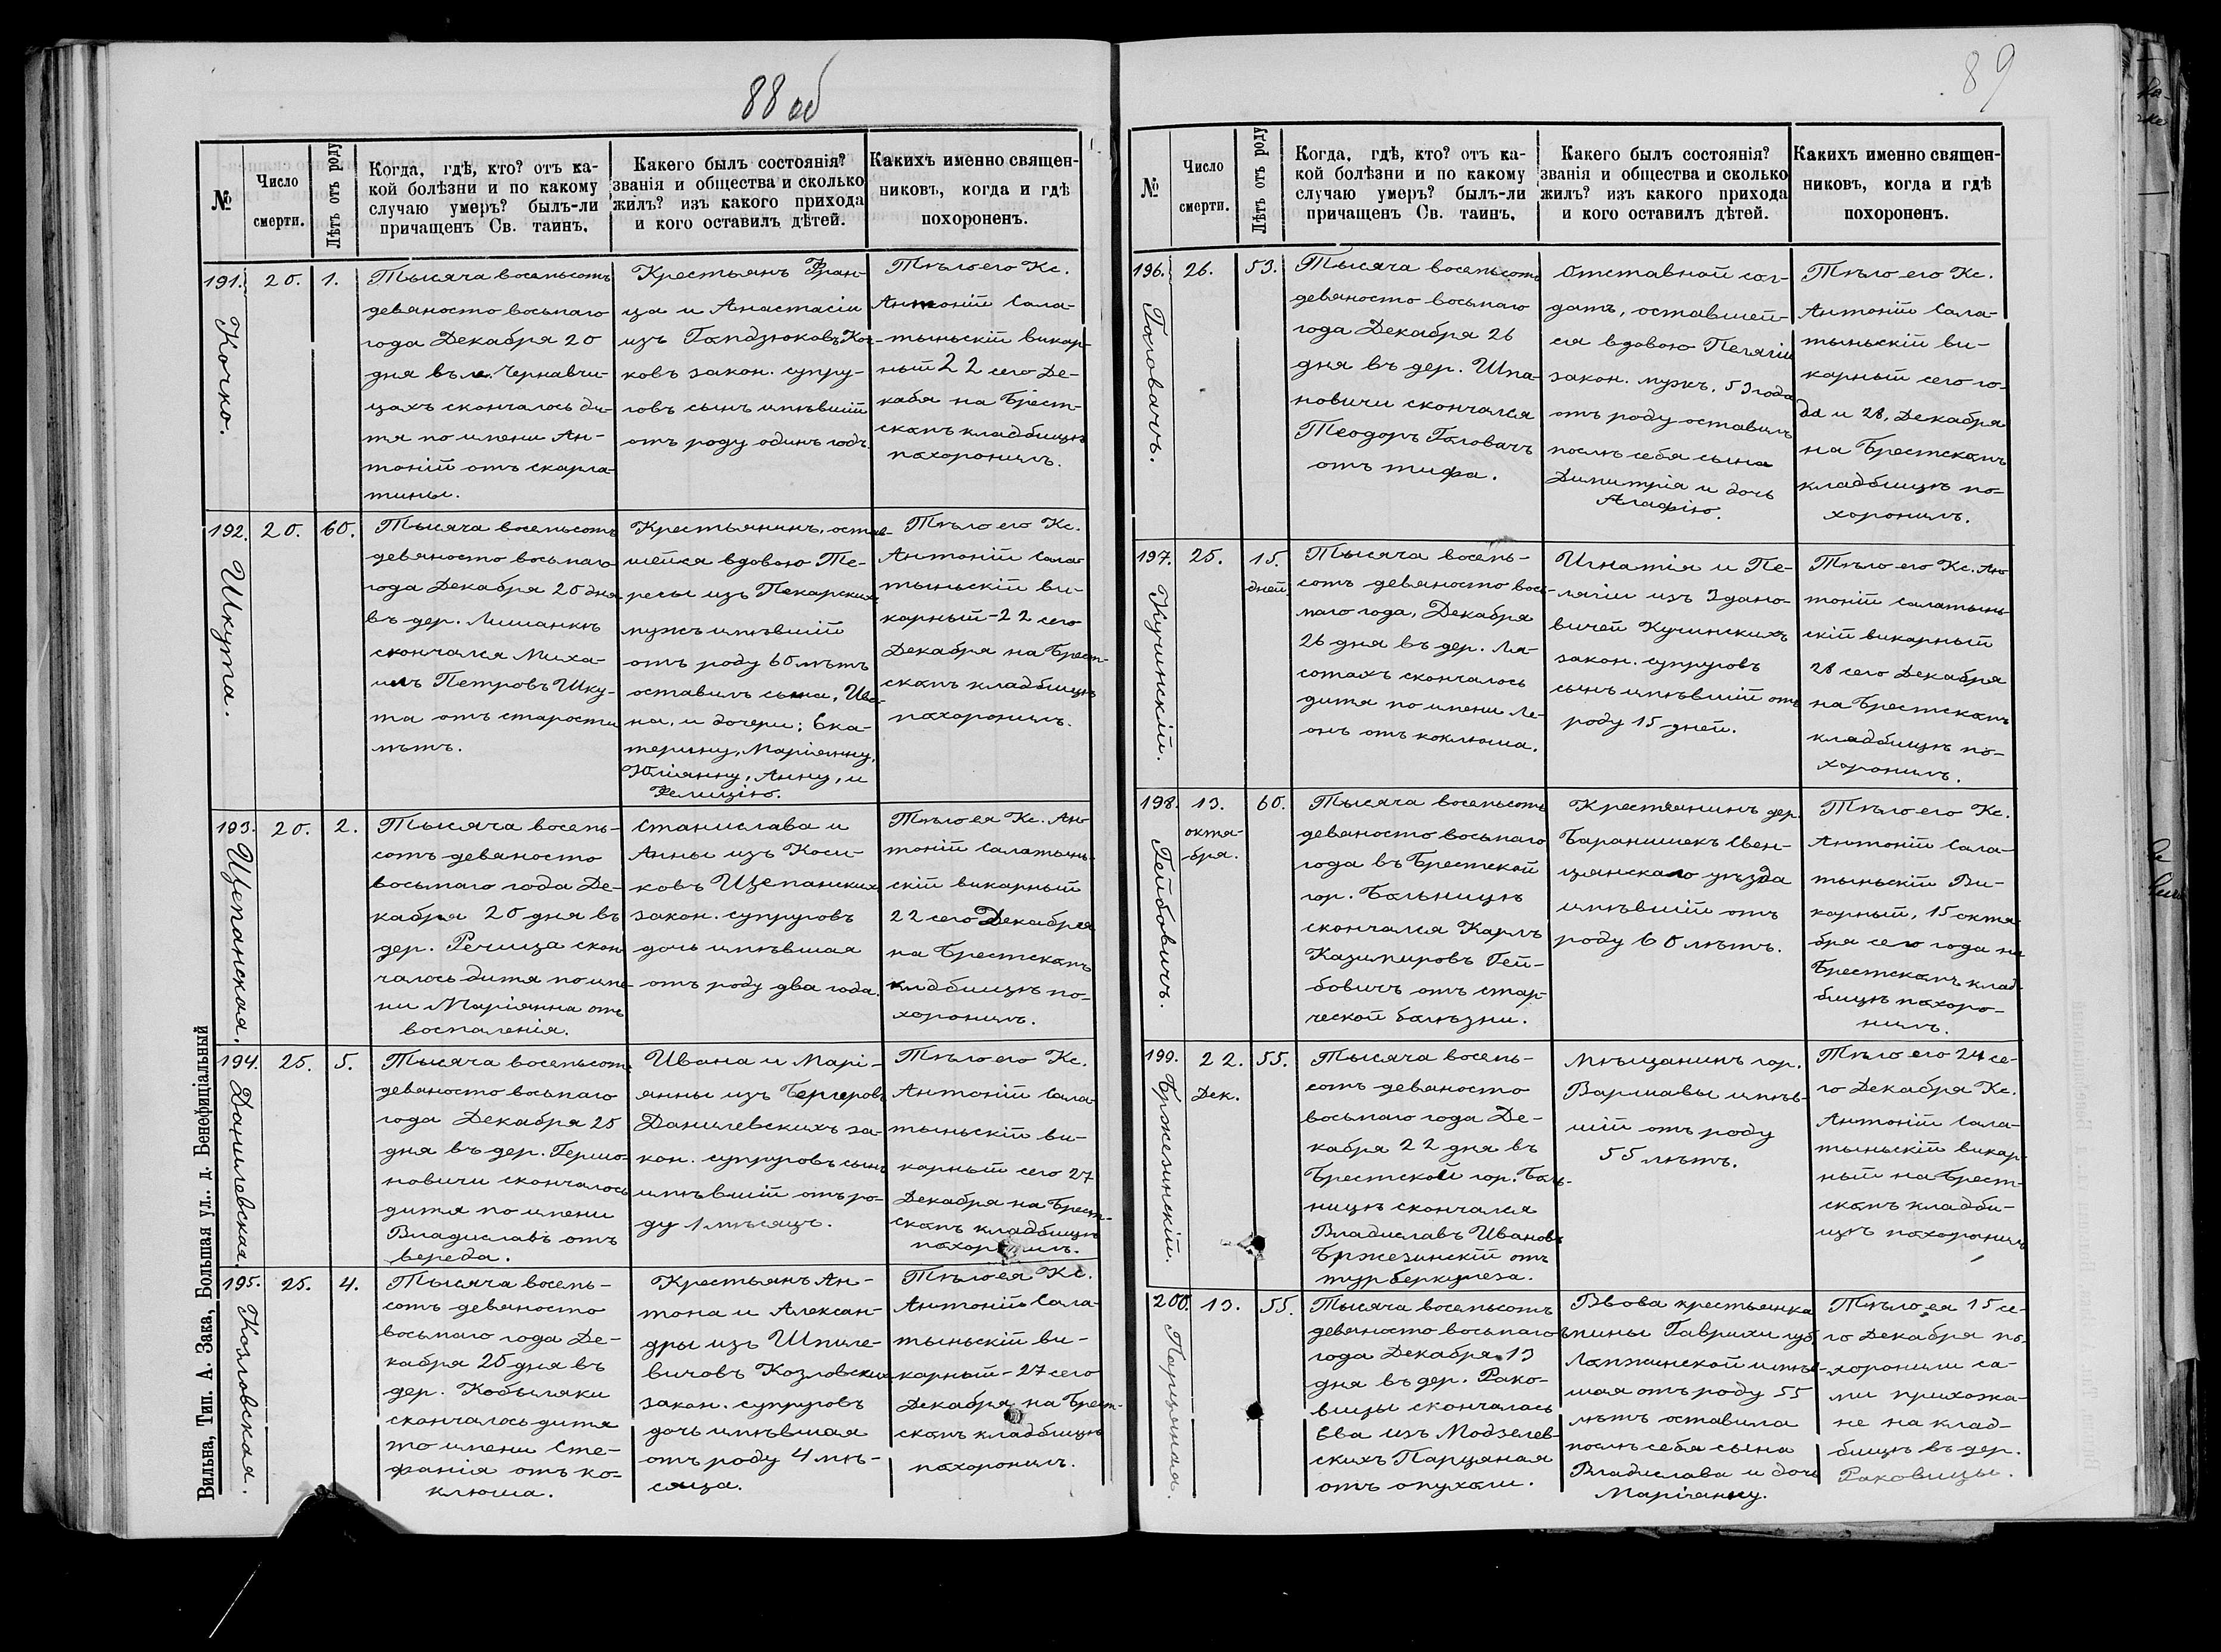 88 об
№
Число
смерти.
Лѣтъ отъ роду
Когда, гдѣ, кто? отъ ка-
кой болѣзни и по какому
случаю умеръ? былъ-ли
причащенъ Св. таинъ.
Какего былъ состоянія?
званія и общества и сколько
жилъ? изъ какого прихода
и кого оставилъ дѣтей.
Какихъ именно священ-
никовъ, когда и гдѣ
похороненъ.
191.
Кочко.
20.
1.
Тысяча восемьсотъ
девяносто восьмаго
года Декабря 20
дня въ м. Чернавчи-
цахъ скончалось ди-
тя по имени Ан-
тоній отъ скарла-
тины.
Крестьянъ Фран-
ца и Анастасіи
изъ Гандзюковъ Коч-
ковъ закон. супру-
говъ сынъ имѣвшій
отъ роду одинъ годъ.
Тѣло его Кс.
Антоній Сала-
тыньскій викар-
ный 22 сего Де-
кабя на Брест-
скомъ кладбищѣ
похоронилъ.
192.
Шкута.
20.
60.
Тысяча восемьсотъ
девяносто восьмаго
года Декабря 20 дня
въ дер. Лишанкѣ
скончался Миха-
илъ Петровъ Шку-
та отъ старости
лѣтъ.
Крестьянинъ, остав-
шейся вдовою Те-
ресы изъ Пекарскихъ
мужъ имѣвшій
отъ роду 60 лѣтъ
оставилъ сына, Ива-
на, и дочери: Ека-
терину, Маріянну,
Юліянну, Анну, и
Фелицію.
Тѣло его Кс.
Антоній Сала-
тыньскій ви-
карный - 22 сего
Декабря на Брест-
скомъ кладбищѣ
похоронилъ.
193.
Щепанская.
20.
2.
Тысяча восемь-
сотъ девяносто
восьмаго года Де-
кабря 20 дня въ
дер. Речица скон-
чалось дитя по име-
ни Маріянна отъ
воспаленія.
Станислава и
Анны изъ Коси-
ковъ Щепанскихъ
закон. супруговъ
дочь имѣвшая
отъ роду два года.
Тѣло ея Кс. Ан-
тоній Салатынь-
скій викарный
22 сего Декабря
на Брестскомъ
кладбищѣ по-
хоронилъ.
194.
Данилевская.
25.
5.
Тысяча восемьсотъ
девяносто восьмаго
года Декабря 25
дня въ дер. Гершо-
новичи скончалось
дитя по имени
Владиславъ отъ
вереда.
Ивана и Марі-
янны изъ Бергеровъ
Данилевскихъ за-
кон. супруговъ сынъ
имѣвшій отъ ро-
ду 1 мѣсяцъ.
Тѣло его Кс.
Антоній Сала-
тыньскій ви-
карный сего 27
Декабря на Брест-
скомъ кладбищѣ
похоронилъ.
195.
Козловская.
25.
4.
Тысяча восемь-
сотъ девяносто
восьмаго года Де-
кабря 25 дня въ
дер. Кобыляки
скончалось дитя
по имени Сте-
фанія отъ ко-
клюша.
Крестьянъ Ан-
тона и Алексан-
дры изъ Шпиле-
вичовъ Козловскихъ
закон. супруговъ
дочь имѣвшая
отъ роду 4 мѣ-
сяца.
Тѣло ея Кс.
Антоній Сала-
тыньскій ви-
карный - 27 сего
Декабря на Брест-
скомъ кладбищѣ
похоронилъ.
Вильна, Тип. А. Зака, Большая ул. д. Бенефиціальный
89
№
Число
смерти.
Лѣтъ отъ роду
Когда, гдѣ, кто? отъ ка-
кой болѣзни и по какому
случаю умеръ? былъ-ли
причащенъ Св. таинъ.
Какего былъ состоянія?
званія и общества и сколько
жилъ? изъ какого прихода
и кого оставилъ дѣтей.
Какихъ именно священ-
никовъ, когда и гдѣ
похороненъ.
196.
Головачъ.
26.
53.
Тысяча восемьсотъ
девяносто восьмаго
года Декабря 26
дня въ дер. Шпа-
новичи скончался
Теодоръ Головачъ
отъ тифа.
Отставной сол-
датъ, оставшей-
ся вдовою Пелягіи
закон. мужъ, 53 года
отъ роду оставилъ
послѣ себя сына
Димитрія и дочь
Агафію.
Тѣло его Кс.
Антоній Сала-
тыньскій ви-
карный сего го-
да и 28, Декабря
на Брестскомъ
кладбищѣ по-
хоронилъ.
197.
Кучинскій.
25.
15.
дней
Тысяча восемь-
сотъ девяносто вось-
маго года, Декабря
26 дня въ дер. Ля-
сотахъ скончалось
дитя по имени Ле-
онъ отъ коклюша.
Игнатія и Пе-
лягіи изъ Здано-
вичей Кучинскихъ
закон. супруговъ
сынъ имѣвшій отъ
роду 15 дней.
Тѣло его Кс. Ан-
тоній Салатынь-
скій викарный
28 сего Декабря
на Брестскомъ
кладбищѣ по-
хоронилъ.
198.
Гейбовичъ.
13.
октя-
бря.
60.
Тысяча восемьсотъ
девяносто восьмаго
года въ Брестской
гор. Больницѣ
скончался Карлъ
Казимировъ Гей-
бовичъ отъ стар-
ческой болѣзни.
Крестьянинъ дер.
Баранишекъ Свен-
цянскаго уѣзда
имѣвшій отъ
роду 60 лѣтъ.
Тѣло его Кс.
Антоній Сала-
тыньскій Ви-
карный, 15 октя-
бря сего года на
Брестскомъ клад-
бищѣ похоро-
нилъ.
199.
Бржезинскій.
22.
Дек.
55.
Тысяча восемь-
сотъ девяносто
восьмаго года Де-
кабря 22 дня въ
Брестской гор. Боль-
ницѣ скончался
Владиславъ Ивановъ
Бржезинскій отъ
турберкулеза.
Мѣщанинъ гор.
Варшавы имѣв-
шій отъ роду
55 лѣтъ.
Тѣло его 24 се-
го Декабря Кс.
Антоній Сала-
тыньскій викар-
ный на Брест-
скомъ кладби-
щѣ похоронилъ
200.
Парцяная.
13.
55.
Тысяча восемьсотъ
девяносто восьмаго
года Декабря 13
дня въ дер. Рако-
вицы скончалась
Ева изъ Модзелев-
скихъ Парцяная
отъ опухоли.
Вдова крестьянка
гмины Гаврихи губ.
Ломжинской имѣв-
шая отъ роду 55
лѣтъ оставила
послѣ себя сына
Владислава и дочь
Маріянну.
Тѣло ея 15 се-
го Декабря по-
хоронили са-
ми прихожа-
не на клад-
бищѣ въ дер.
Раковицы.